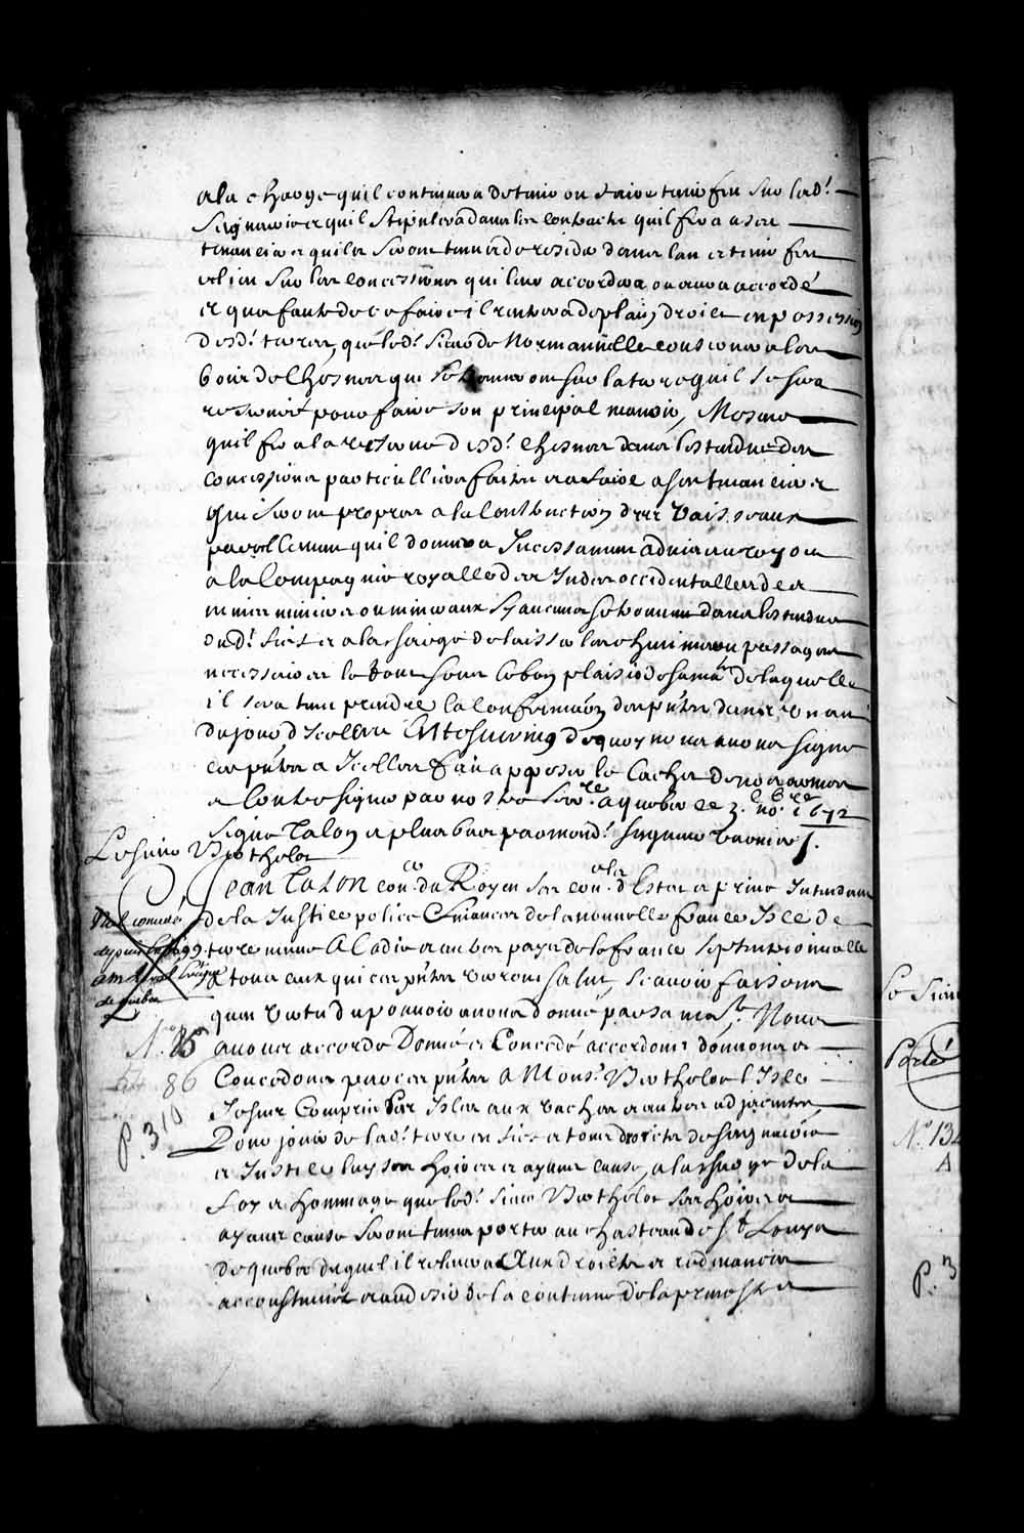 a la charge quil continuera de tenir ou faire tenir feu sur lad.
Seigneurie et quil stipulera dans les contracts quil fera a ses
tenanciers quils seront tenus de resider dans lan et tenir feu
et lieu sur les concessions qui leur accordera ou aura accordé
et qua faute de ce faire il rentrera de plain droict en possession
desd. terres, que led. Sieur de Normanville conservera les
bois de chesnes qui se trouveront sur la terre quil se sera
reservée pour faire son principal manoir, Mesme
quil fera la reserve desd. chesnes dans lestendue des
concessions particullieres faites et a faire a ses tenanciers
qui seront propres a la construction des vaisseaux
pareillement quil donnera Incessamment advis au roy ou
a la Compagnie royalle des Indes occidentalles des
mines minieres ou mineraux sy aucuns se trouvent dans lestendue
dud. fief et a la charge de laisser les chemins ou passages
necessaires le tout sous le bon plaisir de sa maté de laquelle
il sera tenu prendre la confirmaon des pntes dans un an
du jour dIcelles En tesmoing de quoy nous avons signé
ces pntes a Icelles fait apposer le cachet de nos armes
et contresigner par nostre Secre. a quebec ce 3. e no. bre 1672
Signé Talon et plus bas par mond. seigneur varnier /.
Le Sieur Berthelot
Jean Talon con.er du Roy en ses con.els d'Estat et privé Intendant
de la Justice police et finances de la nouvelle france Isle de
terre neuve Acadie et autres pays de la france septentrionnalle
A tous ceux qui ces pntes verront salut, Scavoir faisons
quen vertu du pouvoir a nous donné par sa ma.té Nous
avons accordé Donné et Concedé accordons donnons et
Concedons par ces pntes a Mons. Berthelot l'Isle
Jesus Compris les Isles aux vaches et autres adjacentes
Pour jouir de lad. terre en fief et tous droicts de seigneurie
et Justice luy ses hoirs et ayans cause, a la charge de la
foy et hommage que led. sieur Berthelot ses hoirs et
ayans cause seront tenus porter au chasteau de St Louys
de quebec duquel il relevera Aux droicts et redevances
accoustumés et au desir de la coutume de la prevosté
de quebec
N.o 85
86
P. 310
Le Sieur
Porté
N.o 13
A
P. 3